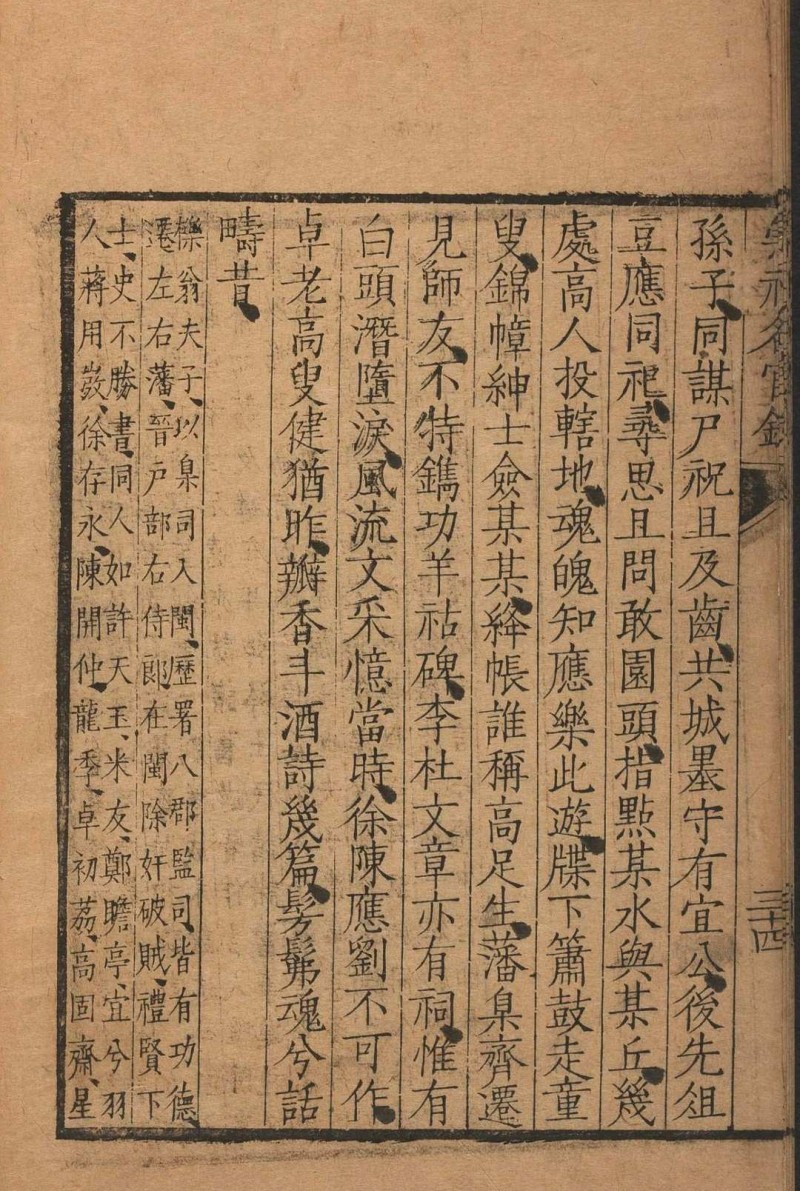 崇祀名宦錄
三十四
孫子、同謀尸祝且及齒、共城墨守有宜公、後先俎
豆應同祀、尋思且問敢園頭、指點某水與某丘、幾
處高人投轄地、魂魄知應樂此遊、牒下簫鼓走童
叟、錦幛紳士僉某某、絳帳誰稱高足生、藩臬齊遷
見師友、不特鐫功羊祜碑、李杜文章亦有祠、惟有
白頭潛墮淚、風流文采憶當時、徐陳應劉不可作、
卓老高叟健猶昨、瓣香斗酒詩幾篇、髣髴魂兮話
疇昔、
櫟翁夫子、以臬司入閩、歷署八郡監司、皆有功德、
遷左右藩、晉戶部右侍郎、在閩除奸破賊、禮賢下
士、史不勝書、同人如許天玉、米友、鄭瞻亭、宜兮羽
人蔣用弢、徐存永、陳開仲、龍季、卓初荔、高固齋、星